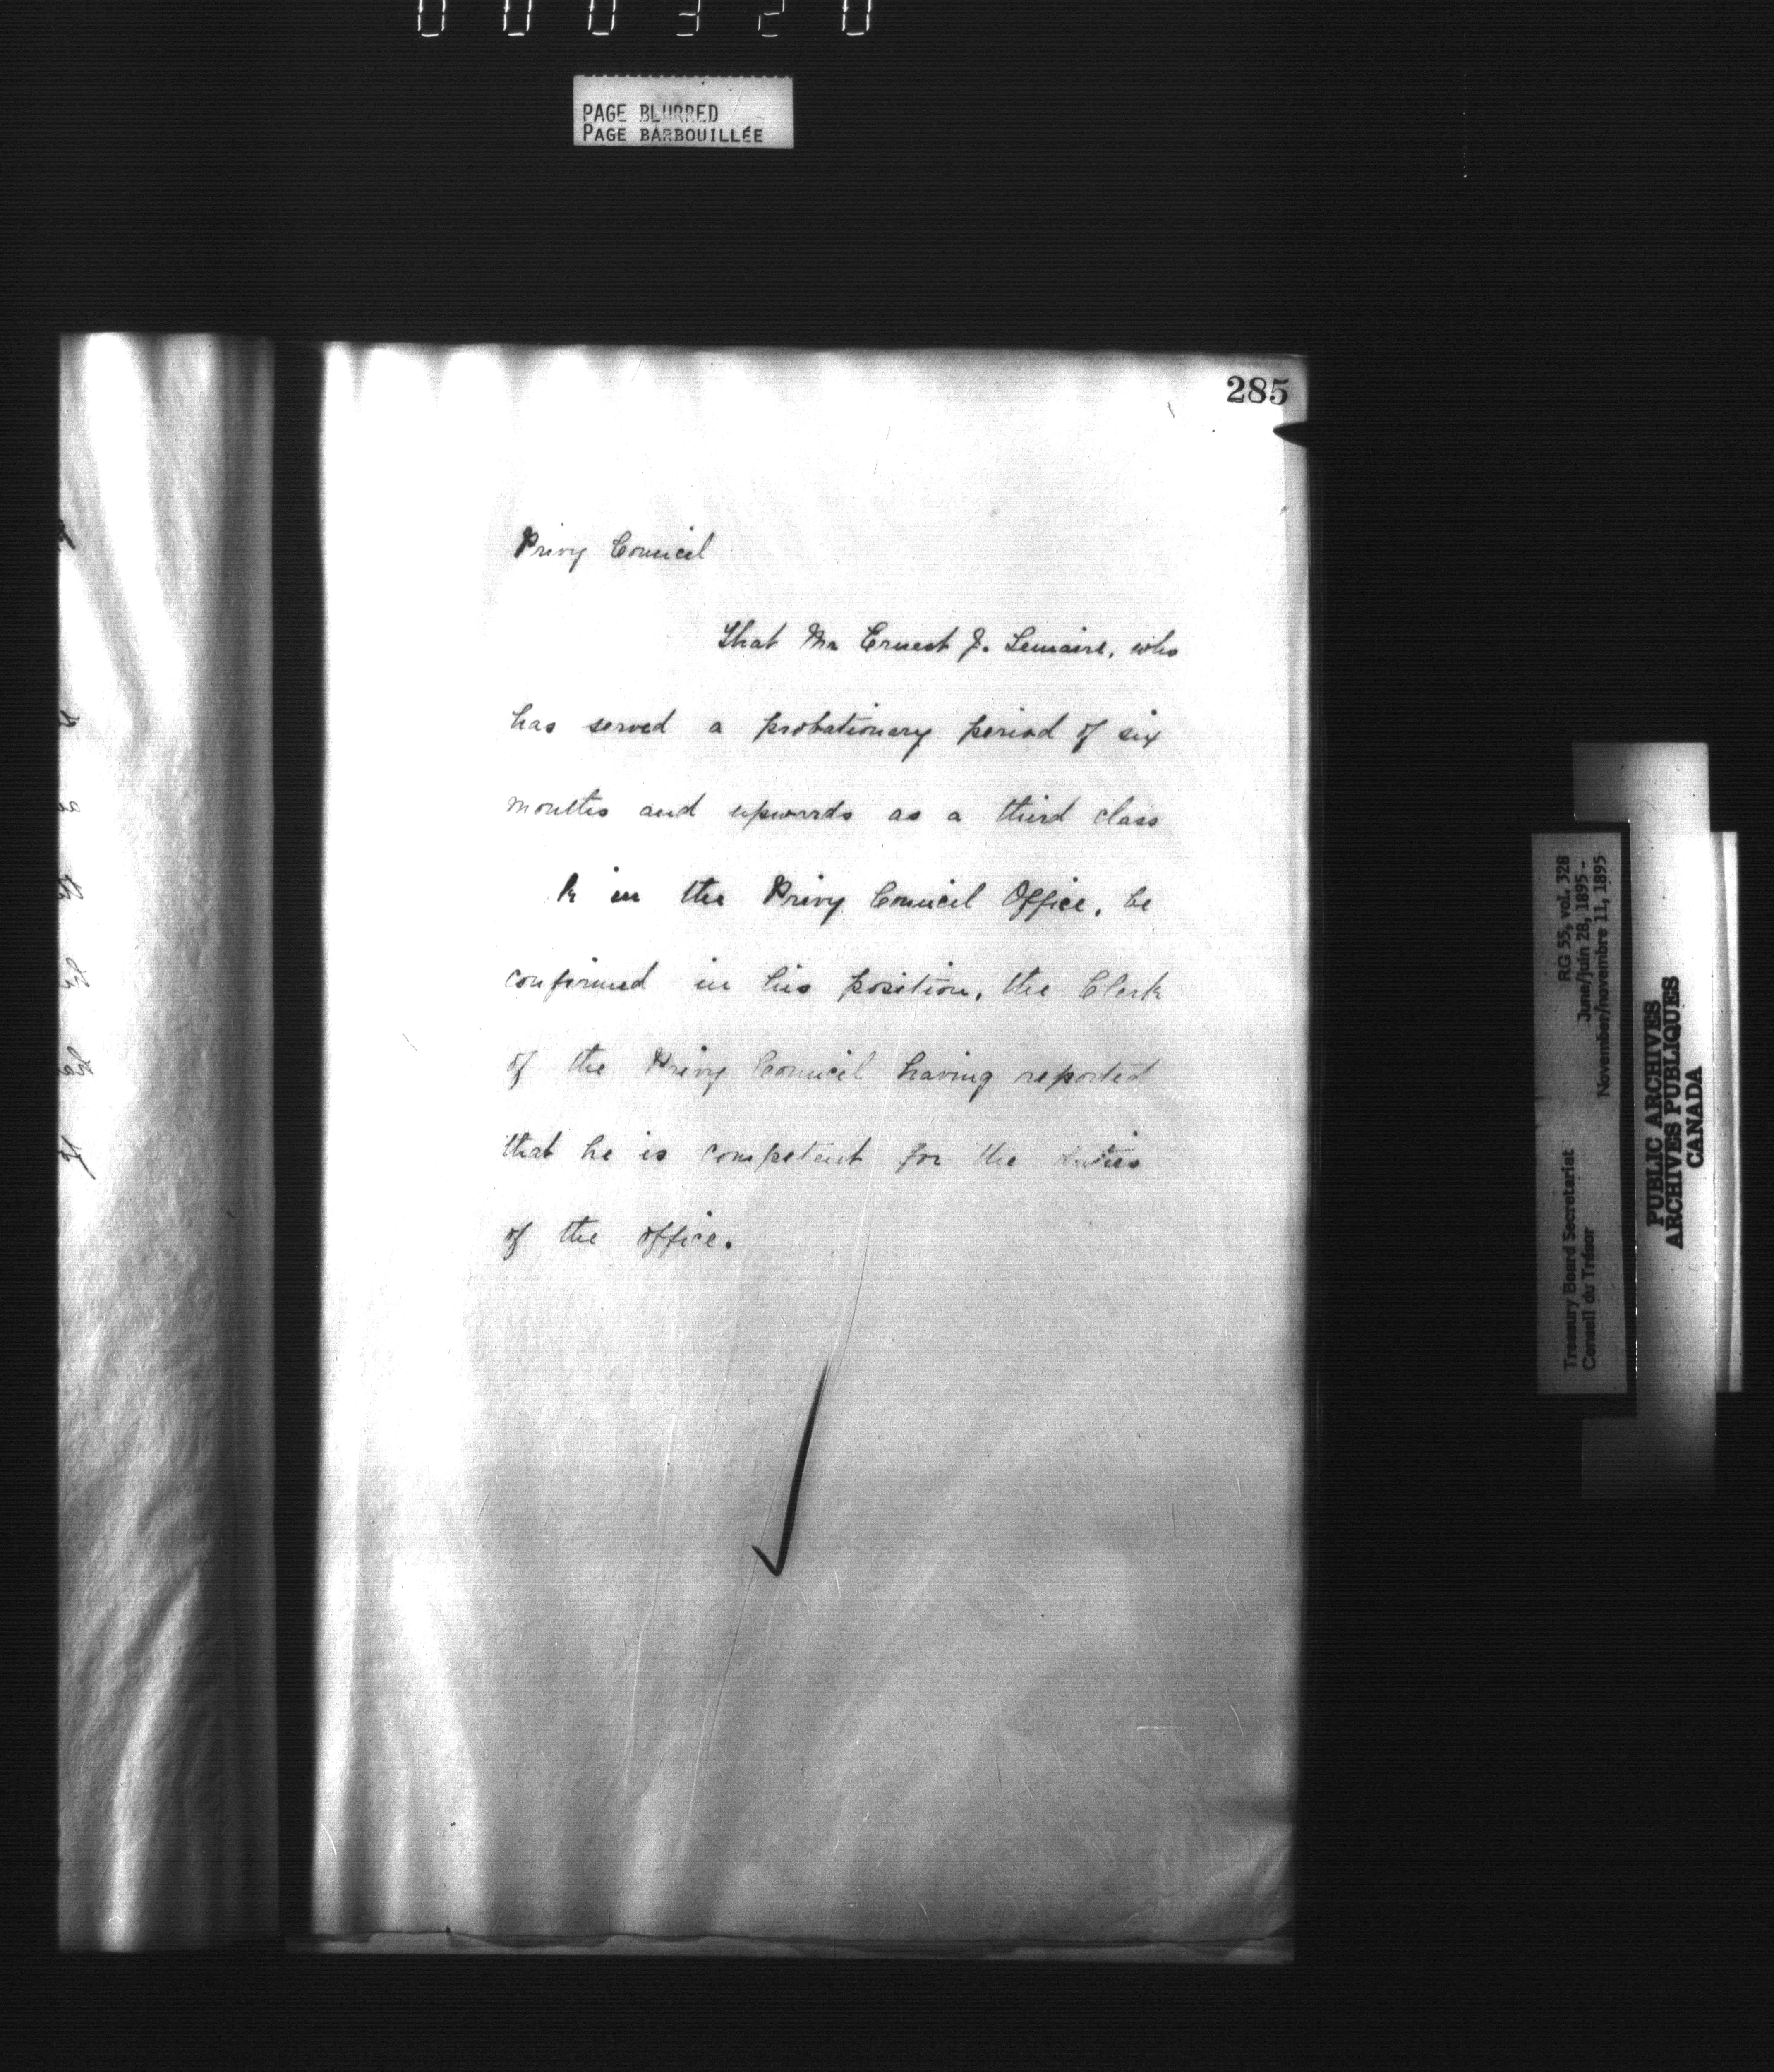 000320
PAGE BLURRED
PAGE BARBOUILLÉE
285
Privy Council
That Mr Ernest J. Lemaire, who
has served a probationary period of six
months and upwards as a third class
k in the Privy Council Office, be
confirmed in his position, the Clerk
of the Privy Council having reported
that he is competent for the duties
of the office.
Treasury Board Secretariat
Conseil du Trésor
RG 55, vol. 328
June/juin 28, 1895 -
November/novembre 11, 1895
PUBLIC ARCHIVES
ARCHIVES PUBLIQUES
CANADA